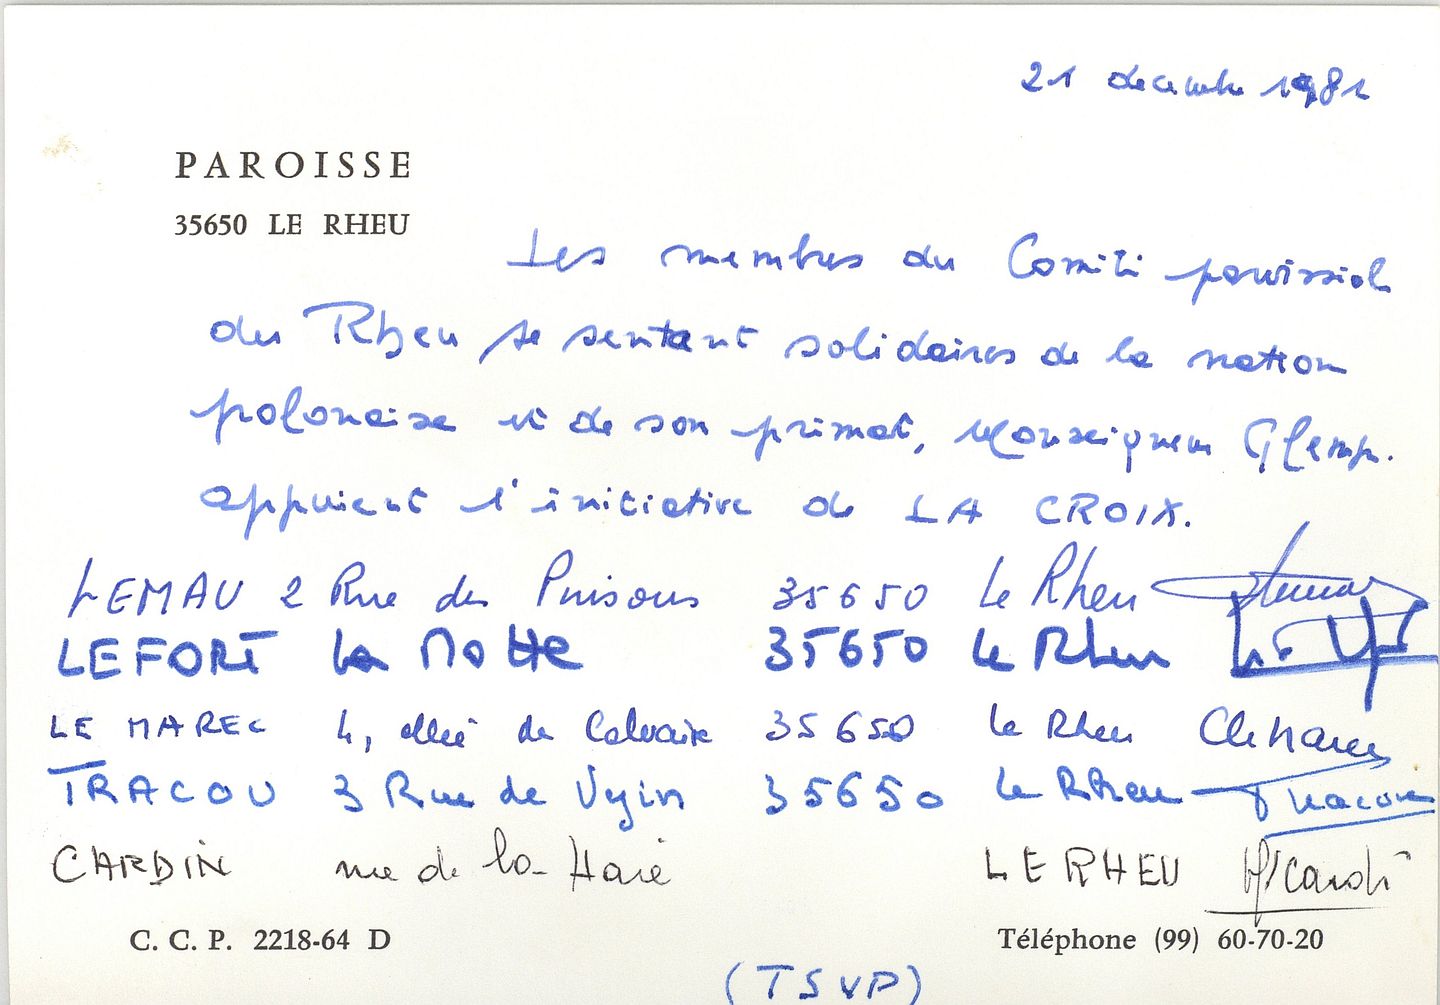 21 decembre 1981
PAROISSE
35650 LE RHEU
Les membres du Comité paroissial
du Rheu se sentant solidaires de la nation
polonaise et de son primat, Monseigneur Glemp.
appuient l'initiative de LA CROIX.
LEMAU 2 Rue des Puisons 35650 Le Rheu
LEFORT La Motte 35650 Le Rheu
LE MAREC 4, allée du Calvaire 35650 Le Rheu
TRACOU 3 Rue de Vezin 35650 Le Rheu Tracou
CARDIN rue de la Haie LE RHEU
C. C. P. 2218-64 D Téléphone (99) 60-70-20
(TSVP)